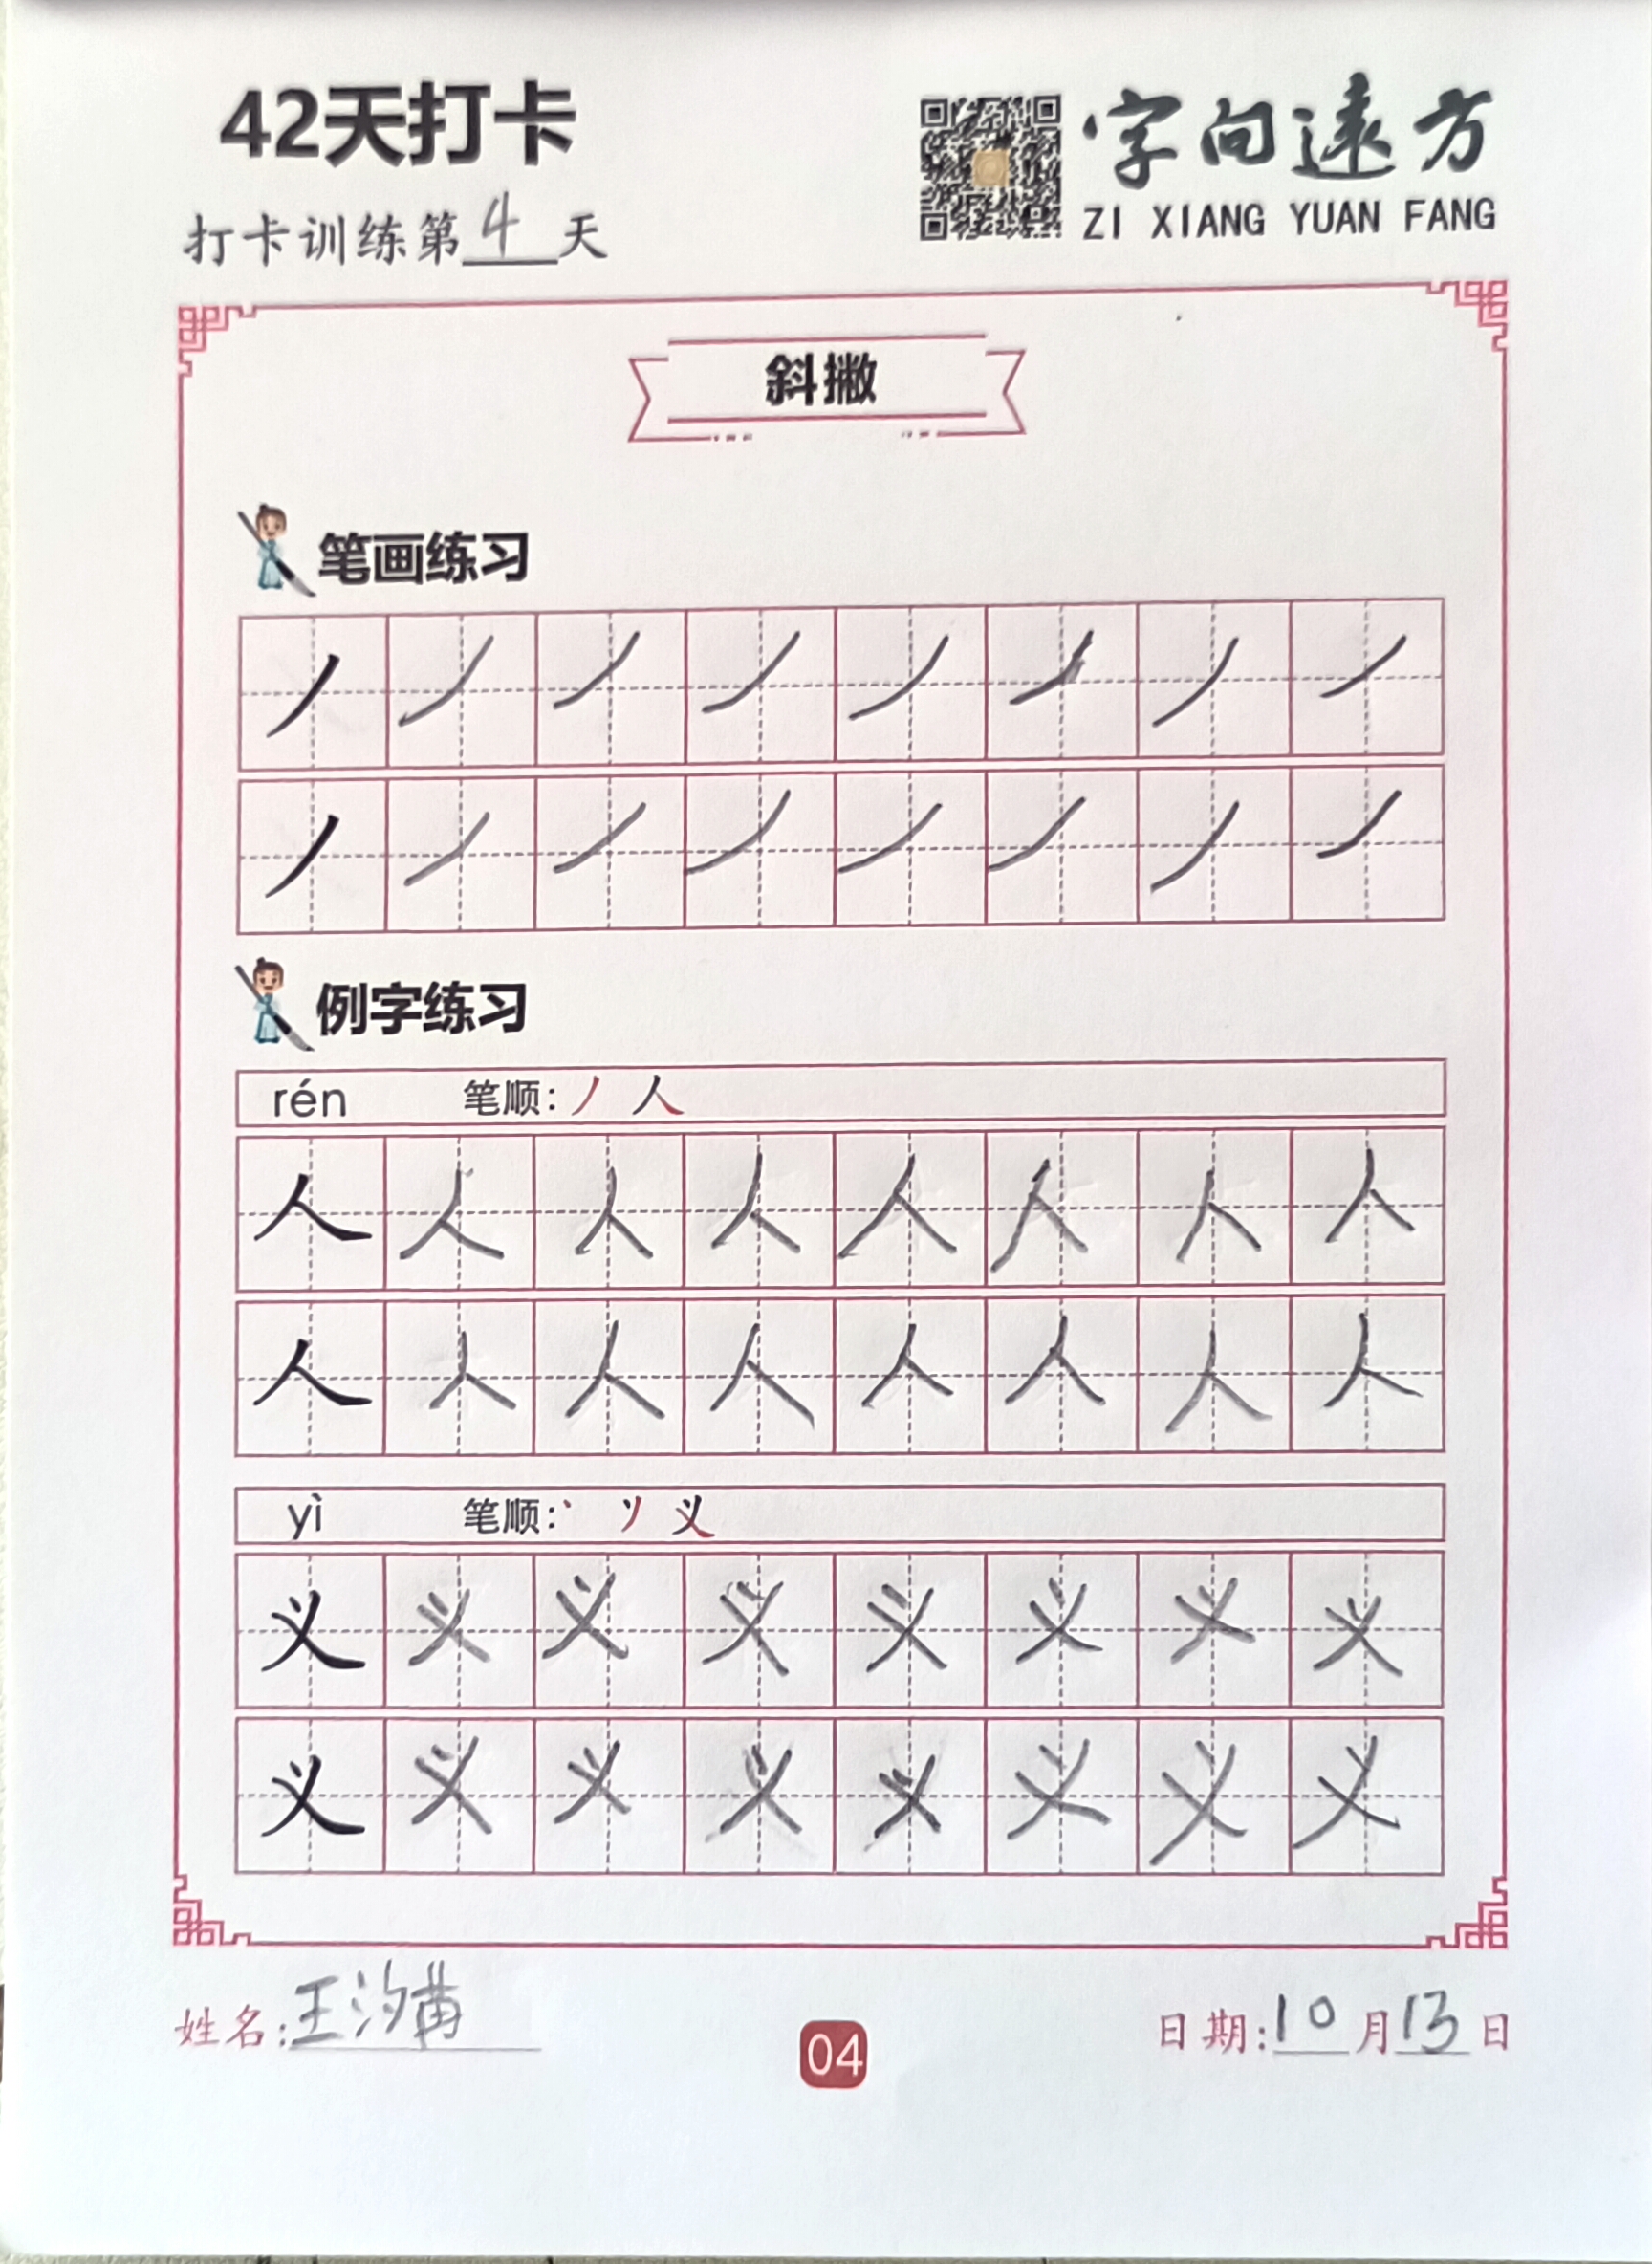 42天打卡
字向遠方
ZI XIANG YUAN FANG
打卡训练第4天
斜撇
笔画练习
丿 丿 丿 丿 丿 丿 丿 丿
丿 丿 丿 丿 丿 丿 丿 丿
例字练习
rén 笔顺: 丿 人
人 人 人 人 人 人 人 人
人 人 人 人 人 人 人 人
yì 笔顺: 丶 丷 义
义 义 义 义 义 义 义 义
义 义 义 义 义 义 义 义
姓名: 王汐
04
日期: 10月13日